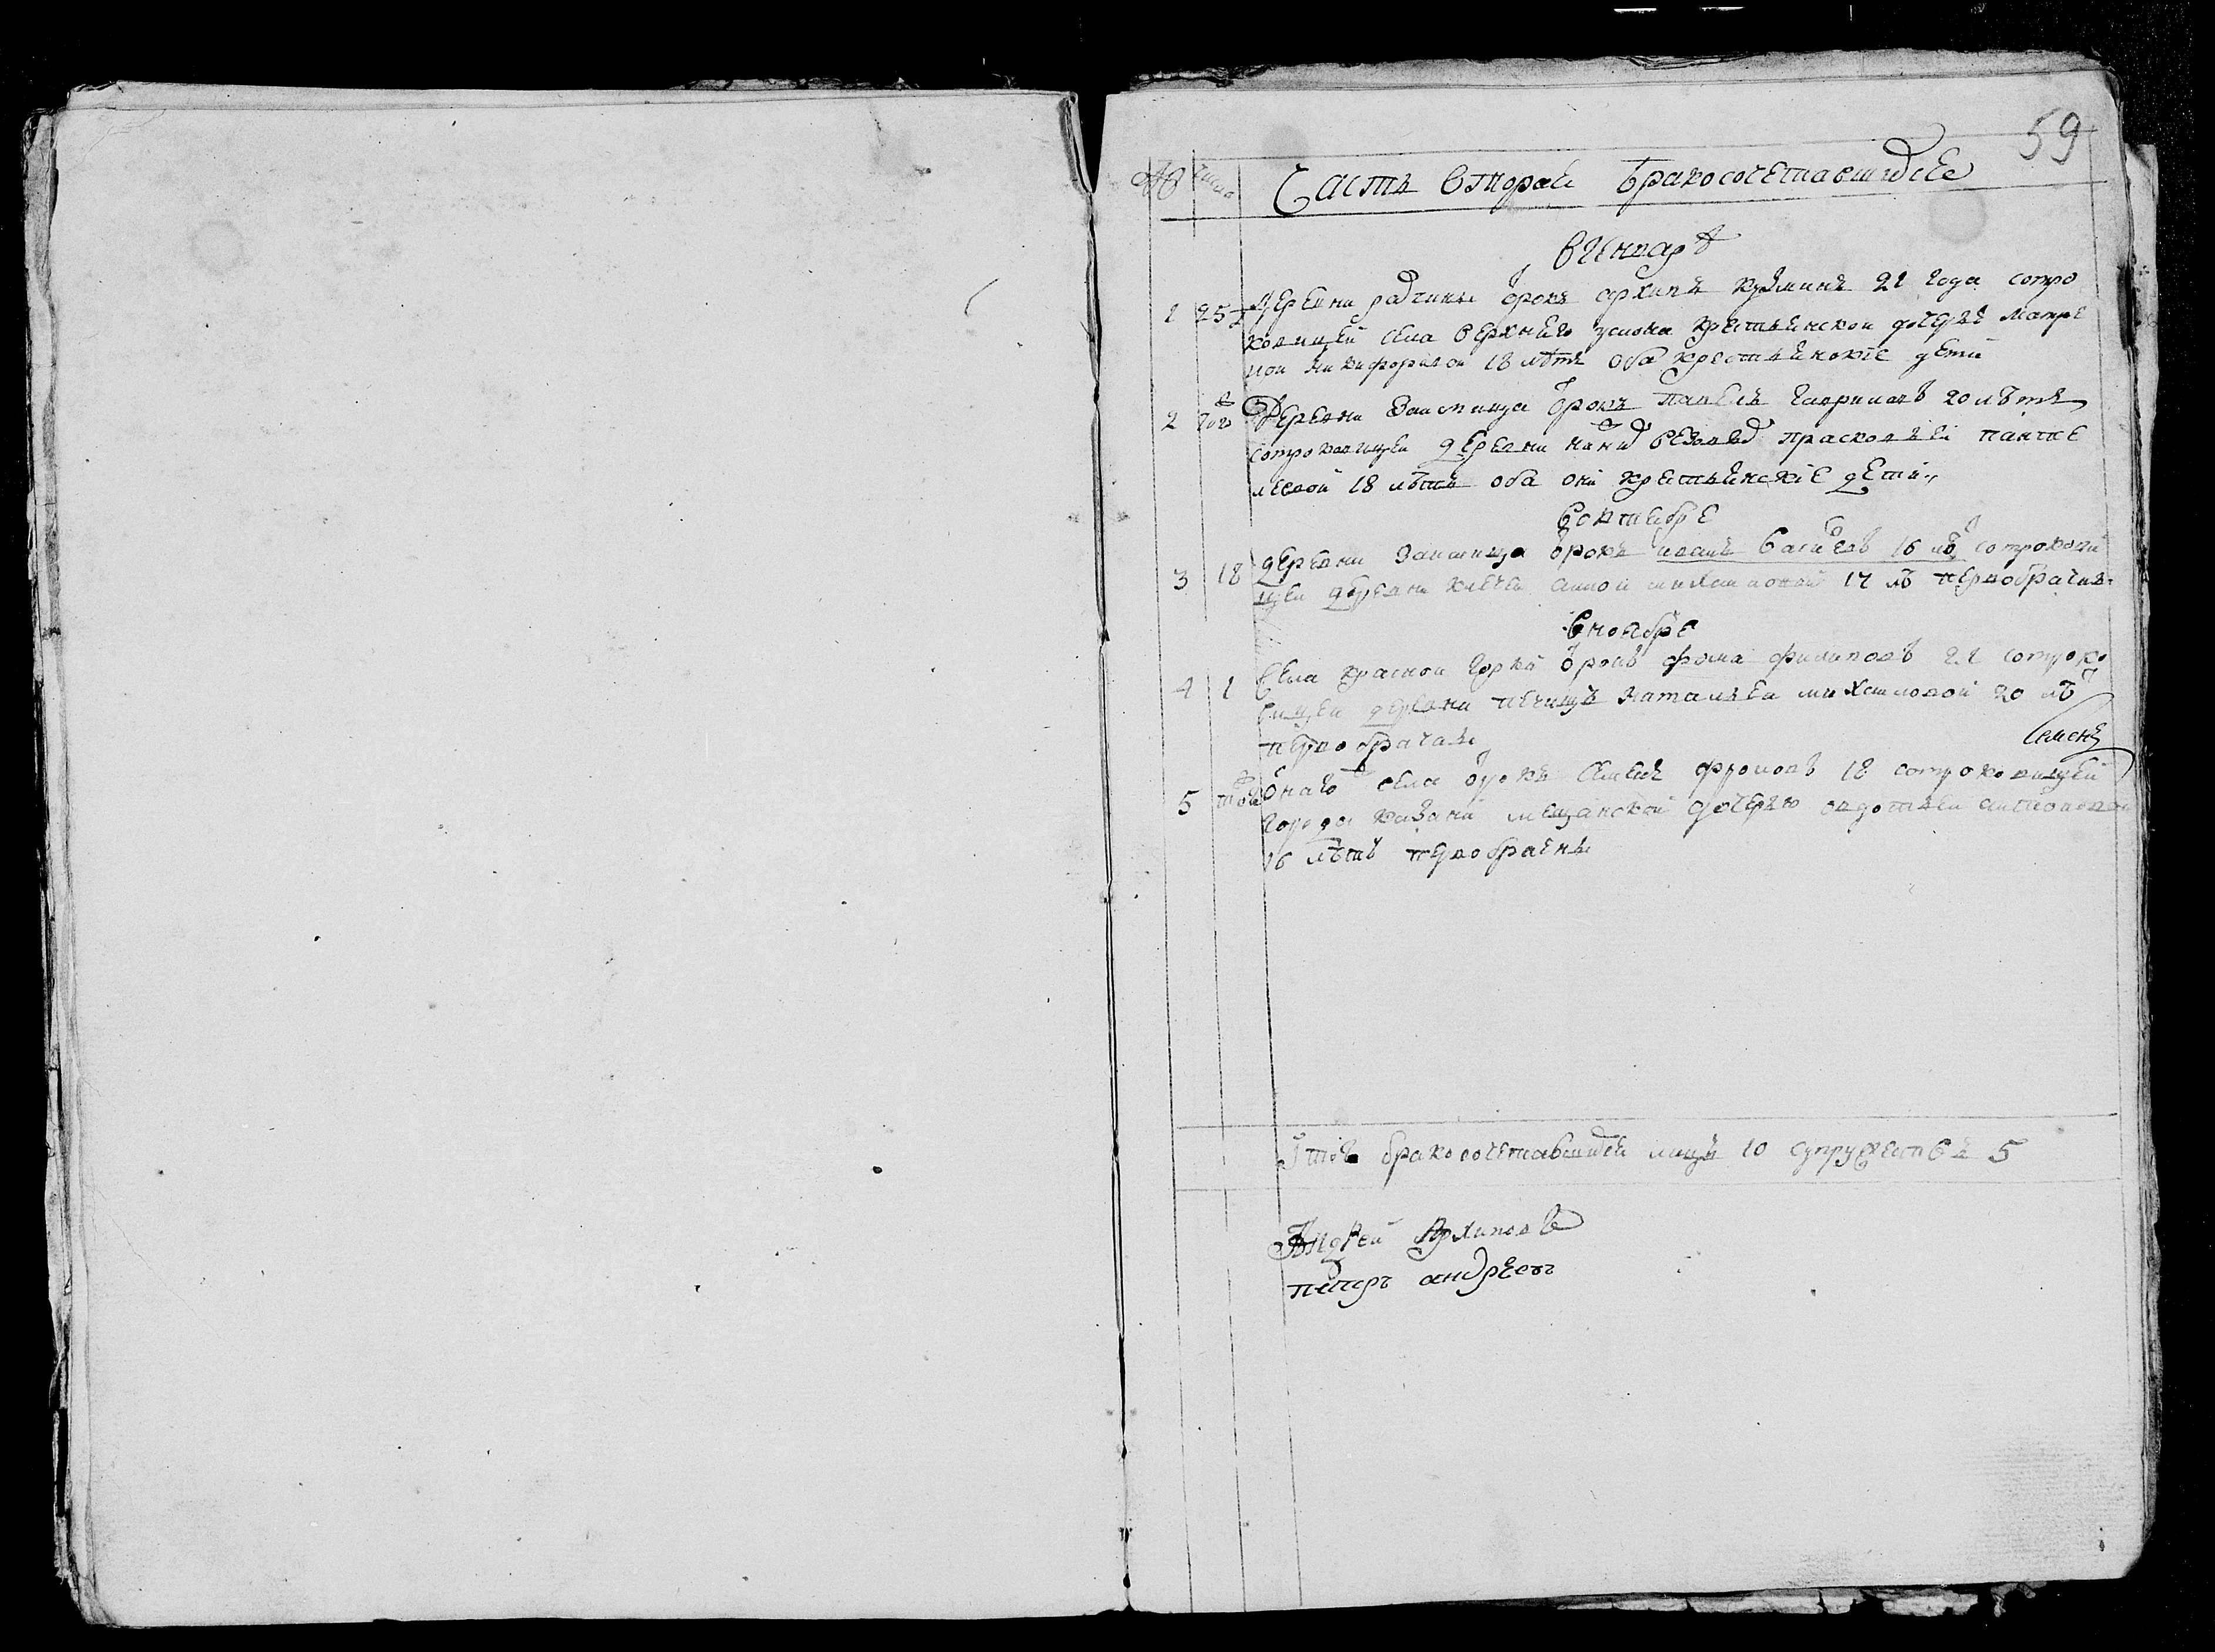 59
№ число Часть вторая бракосочетавшихся
В генваре
1 25 Деревни отрокъ архипъ кузминъ 21 года сотро
ковицей села верхняго услона крестьянской дочерью матре
ной никифоровой 18 летъ оба крестьянские дети
2 того Деревни Заимища отрокъ павелъ гавриловъ 20 летъ
сотроковицей деревни прасковьей панте
леевой 18 летъ оба они крестьянские дети
В октябре
3 18 деревни Заимища отрокъ иванъ васильевъ 16 ле сотрокови
цей деревни ключей анной михаиловой 17 ле первобрачны
В ноябре
4 1 Села красной горки отрокъ фома филиповъ 21 сотроко
вицей деревни печищъ натальей михаиловой 20 ле
первобрачны
Семенъ
5 того онаго села отрокъ фроловъ 18 сотроковицей
города казани мещанской дочерью овдотьей антоновой
16 летъ первобрачны
Итого бракосочетавшихся лицъ 10 супружествъ 5
Андрей Архиповъ
петръ андреевъ